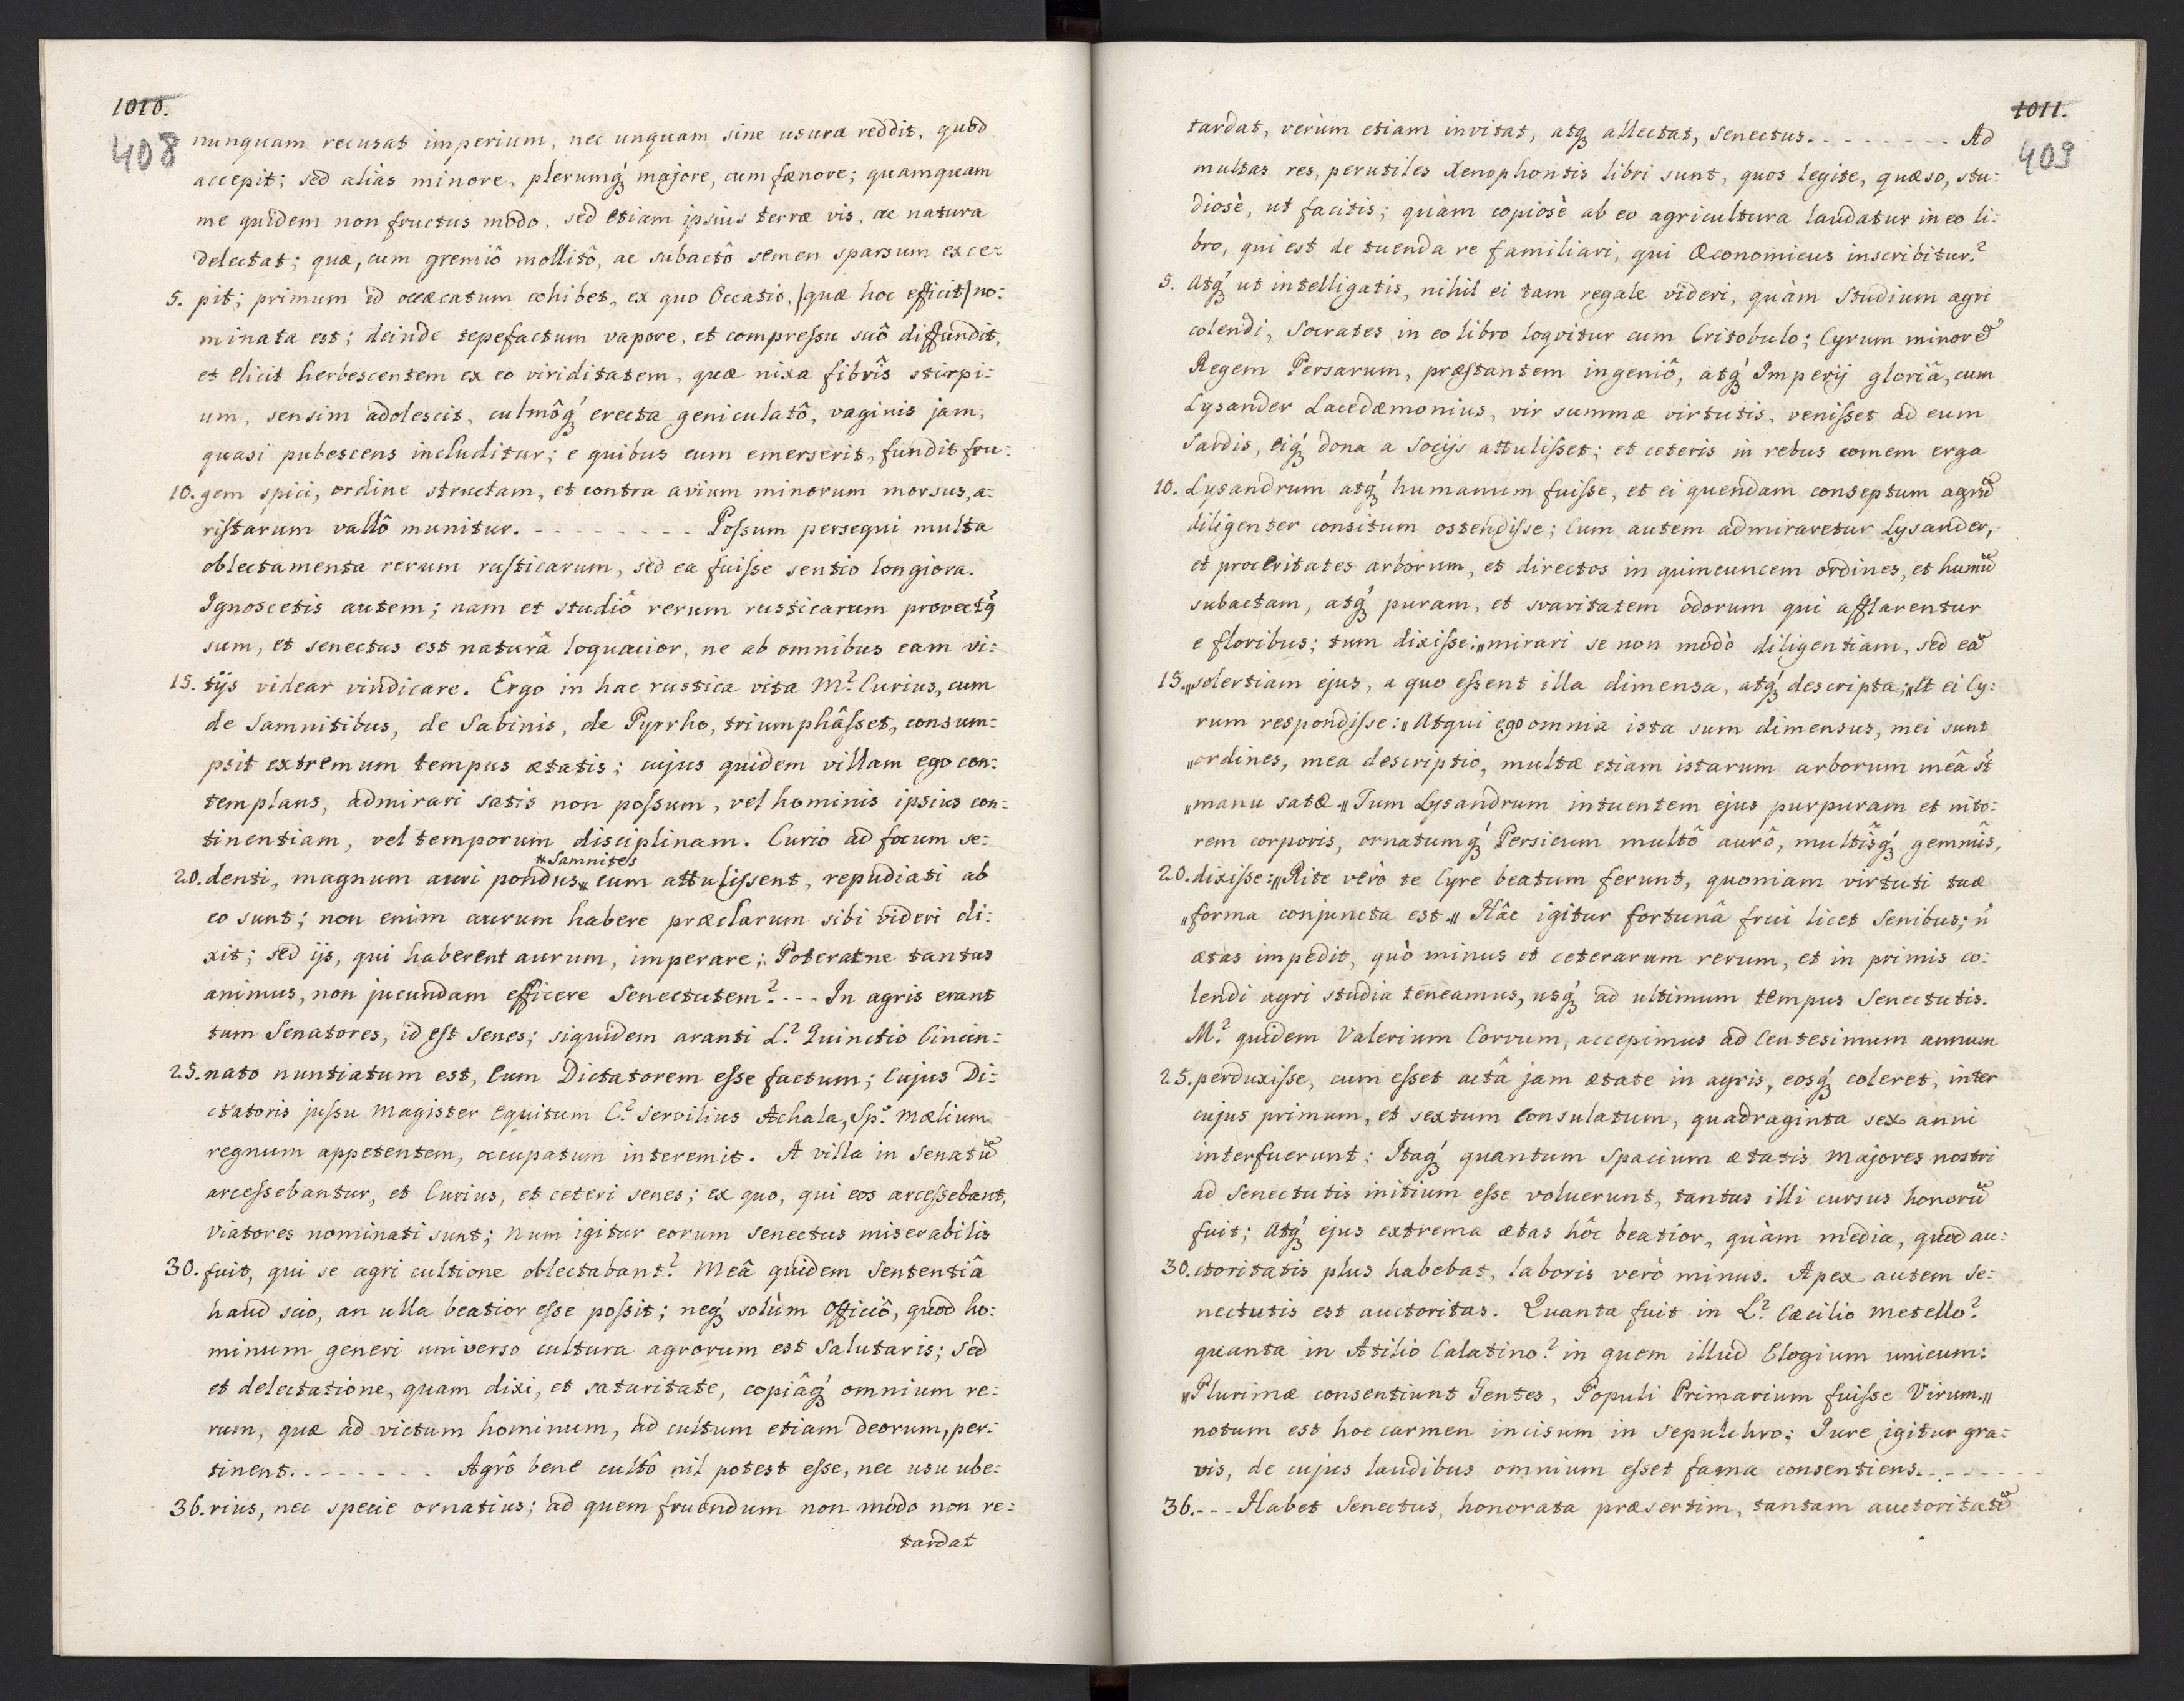 1010.
408
nunquam recusat imperium, nec unquam sine usura reddit, quod
accepit; sed alias minore, plerumq́ majore, cum fænore; quamquam
me quidem non fructus modo, sed etiam ipsius terræ vis, ac natura
delectat; quæ, cum gremiô mollitô, ac subactô semen sparsum exce:
5. pit; primum id occæcatum cohibet, ex quo Occatio, /quæ hoc efficit/ no:
minata est; deinde tepefactum vapore, et compreſsu suô diffundit,
et elicit herbescentem ex eo viriditatem, quæ nixa fibrîs stirpi:
um, sensim adolescit, culmôq́ erecta geniculatô, vaginis jam,
quasi pubescens includitur; e quibus cum emerserit, fundit fru:
10. gem spici, ordine structam, et contra avium minorum morsus, a:
riſtarum vallô munitur. - - - - - - - - Poſsum persequi multa
oblectamenta rerum ruſticarum, sed ea fuiſse sentio longiora.
Ignoscetis autem; nam et studiô rerum rusticarum provectꝰ
sum, et senectus est naturâ loquacior, ne ab omnibus eam vi:
15. tijs videar vindicare. Ergo in hac rustica vita M.? Curius, cum
de Samnitibus, de Sabinis, de Pyrrho, triumphâſset, consum:
psit extremum tempus ætatis; cujus quidem villam ego con:
templans, admirari satis non poſsum, vel hominis ipsius con:
tinentiam, vel temporum disciplinam. Curio ad focum se:
〃Samnites
20. denti, magnum auri pondus〃 cum attuliſsent, repudiati ab
eo sunt; non enim aurum habere præclarum sibi videri di:
xit; sed ijs, qui haberent aurum, imperare; Poteratne tantus
animus, non jucundam efficere Senectutem? - - - In agris erant
tum Senatores, id eſt senes; siquidem aranti L.? Quinctio Cincin:
25. nato nuntiatum est, Eum Dictatorem eſse factum; Cujus Di:
ctatoris juſsu Magister Equitum C.? Servilius Achala, Sp.? Mælium
regnum appetentem, occupatum interemit. A villa in Senatu͠
arceſsebantur, et Curius, et ceteri senes; ex quo, qui eos arceſsebant,
Viatores nominati sunt; Num igitur eorum senectus miserabilis
30. fuit, qui se agri cultione oblectabant? Meâ quidem Sententiâ
haud scio, an ulla beatior eſse poſsit; neq́ solùm Officiô, quod ho:
minum generi universo cultura agrorum est Salutaris; Sed
et delectatione, quam dixi, et saturitate, copiâq́ omnium re:
rum, quæ ad victum hominum, ad cultum etiam deorum, per:
tinent. - - - - - - - Agrô bene cultô nil potest esse, nec usu ube:
36. rius, nec specie ornatius; ad quem fruendum non modo non re:
tardat
1011.
409
tardat, verùm etiam invitat, atq́ allectat, Senectus. - - - - - - - - Ad
multas res, perutiles Xenophontis libri sunt, quos legite, quæso, stu:
diosè, ut facitis; quàm copiosè ab eo agricultura laudatur in eo li:
bro, qui est de tuenda re familiari, qui Œconomicus inscribitur?
5. Atq́ ut intelligatis, nihil ei tam regale videri, quàm Studium agri
colendi, Socrates in eo libro loqvitur cum Critobulo; Cyrum minore͠
Regem Persarum, præſtantem ingeniô, atq́ Imperij gloriâ, cum
Lysander Lacedæmonius, vir summæ virtutis, veniſset ad eum
Sardis, eiq́ dona a Socijs attuliſset; et ceteris in rebus comem erga
10. Lysandrum atq́ humanum fuiſse, et ei quendam conseptum agru͠
diligenter consitum ostendiſse; Cum autem admiraretur Lysander,
et proceritates arborum, et directos in quincuncem ordines, et humu͠
subactam, atq́ puram, et svavitatem odorum qui afflarentur
e floribus; tum dixiſse: „mirari se non modò diligentiam, sed ea͠
15. „solertiam ejus, a quo eſsent illa dimensa, atq́ descripta;„ Et ei Cy:
rum respondiſse: „Atqui ego omnia ista sum dimensus, mei sunt
„ordines, mea descriptio, multæ etiam istarum arborum meâ s̃t
„manu satæ.„ Tum Lysandrum intuentem ejus purpuram et nito:
rem corporis, ornatumq́ Persicum multô aurô, multîsq́ gemmîs,
20. dixiſse: „Rite verò te Cyre beatum ferunt, quoniam virtuti tuæ
„forma conjuncta est.„ Hâc igitur fortunâ frui licet Senibus; ñ
ætas impedit, quò minus et ceterarum rerum, et in primis co:
lendi agri studia teneamus, usq́ ad ultimum tempus Senectutis.
M.? quidem Valerium Corvum, accepimus ad Centesimum annum
25. perduxiſse, cum eſset actâ jam ætate in agris, eosq́ coleret, inter
cujus primum, et sextum Consulatum, quadraginta sex anni
interfuerunt: Itaq́ quantum Spacium ætatis Majores nostri
ad Senectutis initium eſse voluerunt, tantus illi cursus honoru͠
fuit; Atq́ ejus extrema ætas hôc beatior, quàm media, quod au:
30. ctoritatis plus habebat, laboris verò minus. Apex autem Se:
nectutis est auctoritas. Quanta fuit in L.? Cæcilio Metello?
quanta in Atilio Calatino? in quem illud Elogium unicum:
„Plurimæ consentiunt Gentes, Populi Primarium fuiſse Virum.„
notum est hoc carmen incisum in Sepulchro: Jure igitur gra:
vis, de cujus laudibus omnium eſset fama consentiens. - - - - - - -
36. - - - Habet Senectus, honorata præsertim, tantam auctoritate͠